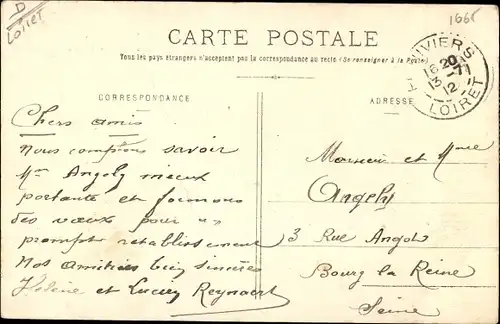 D
Loiret
1665
CARTE POSTALE
Tous les pays étrangers n'acceptent pas la correspondance au recto (Se renseigner à la Poste)
PITHIVIERS
16 20
13 - 7
12
LOIRET
CORRESPONDANCE
ADRESSE
Chers amis
Nous comptons savoir
Mme Angely mieux
portante et formons
des vœux pour un
prompt rétablissement
Nos amitiés bien sincères
Hélène et Lucien Reynaert
Monsieur et Mme
Angely
3 Rue Angot
Bourg la Reine
Seine